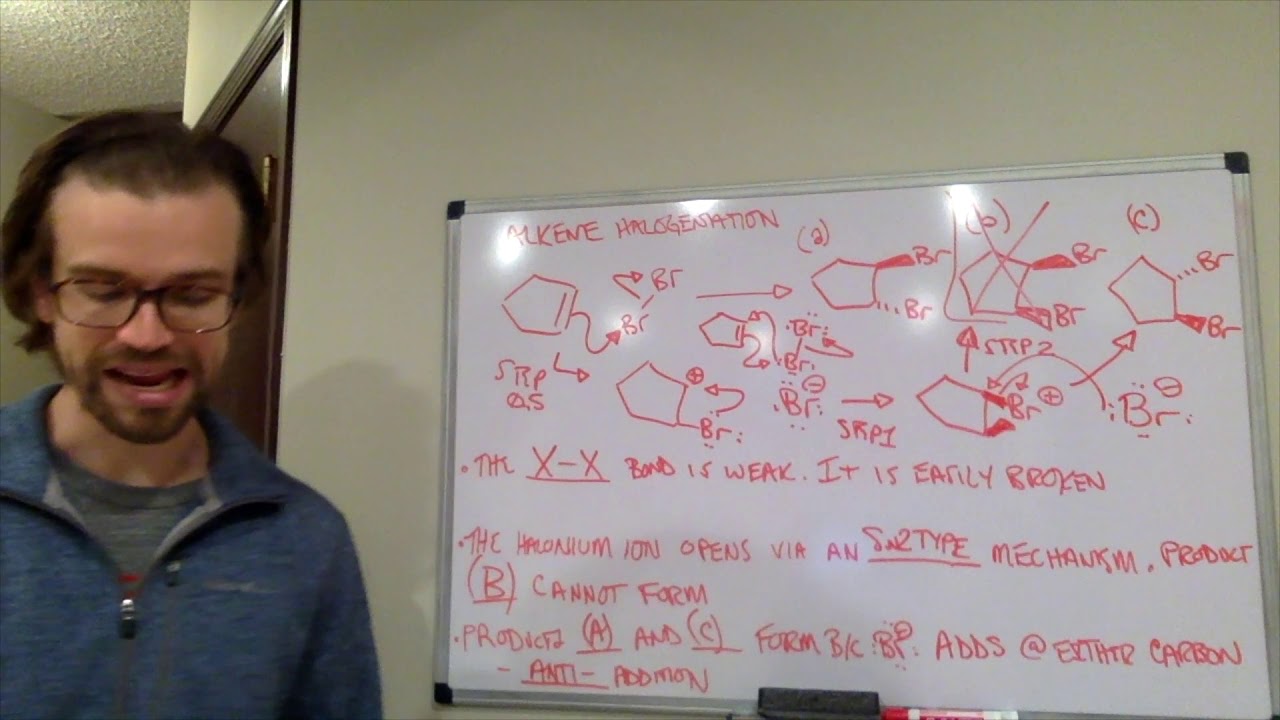 ALKENE HALOGENATION
(a)
(b)
(c)
Br
Br
Br
Br
Br
Br
Br
Br
:Br:
:Br:
STRP
0,5
⊕
Br:
:Br: ⊖
STRP1
STRP2
Br ⊕
:Br: ⊖
• THE X-X BOND IS WEAK. IT IS EASILY BROKEN
• THE HALONIUM ION OPENS VIA AN SN2 TYPE MECHANISM. PRODUCT
(B) CANNOT FORM
• PRODUCTS (A) AND (C) FORM B/C :Br:⊖ ADDS @ EITHER CARBON
- ANTI- ADDITION